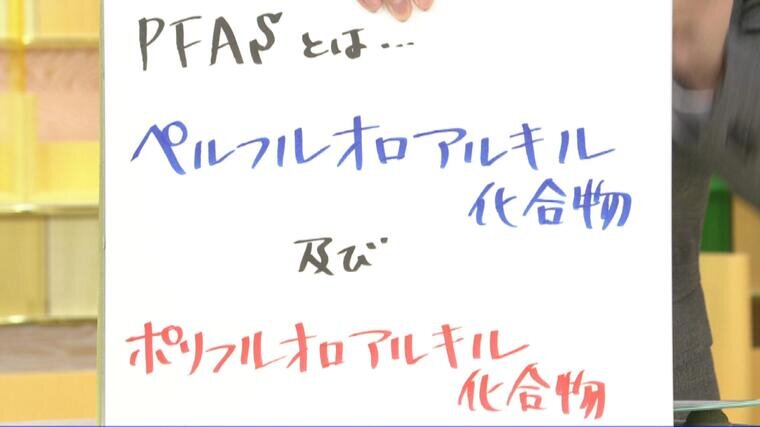 PFASとは…
ペルフルオロアルキル
化合物
及び
ポリフルオロアルキル
化合物